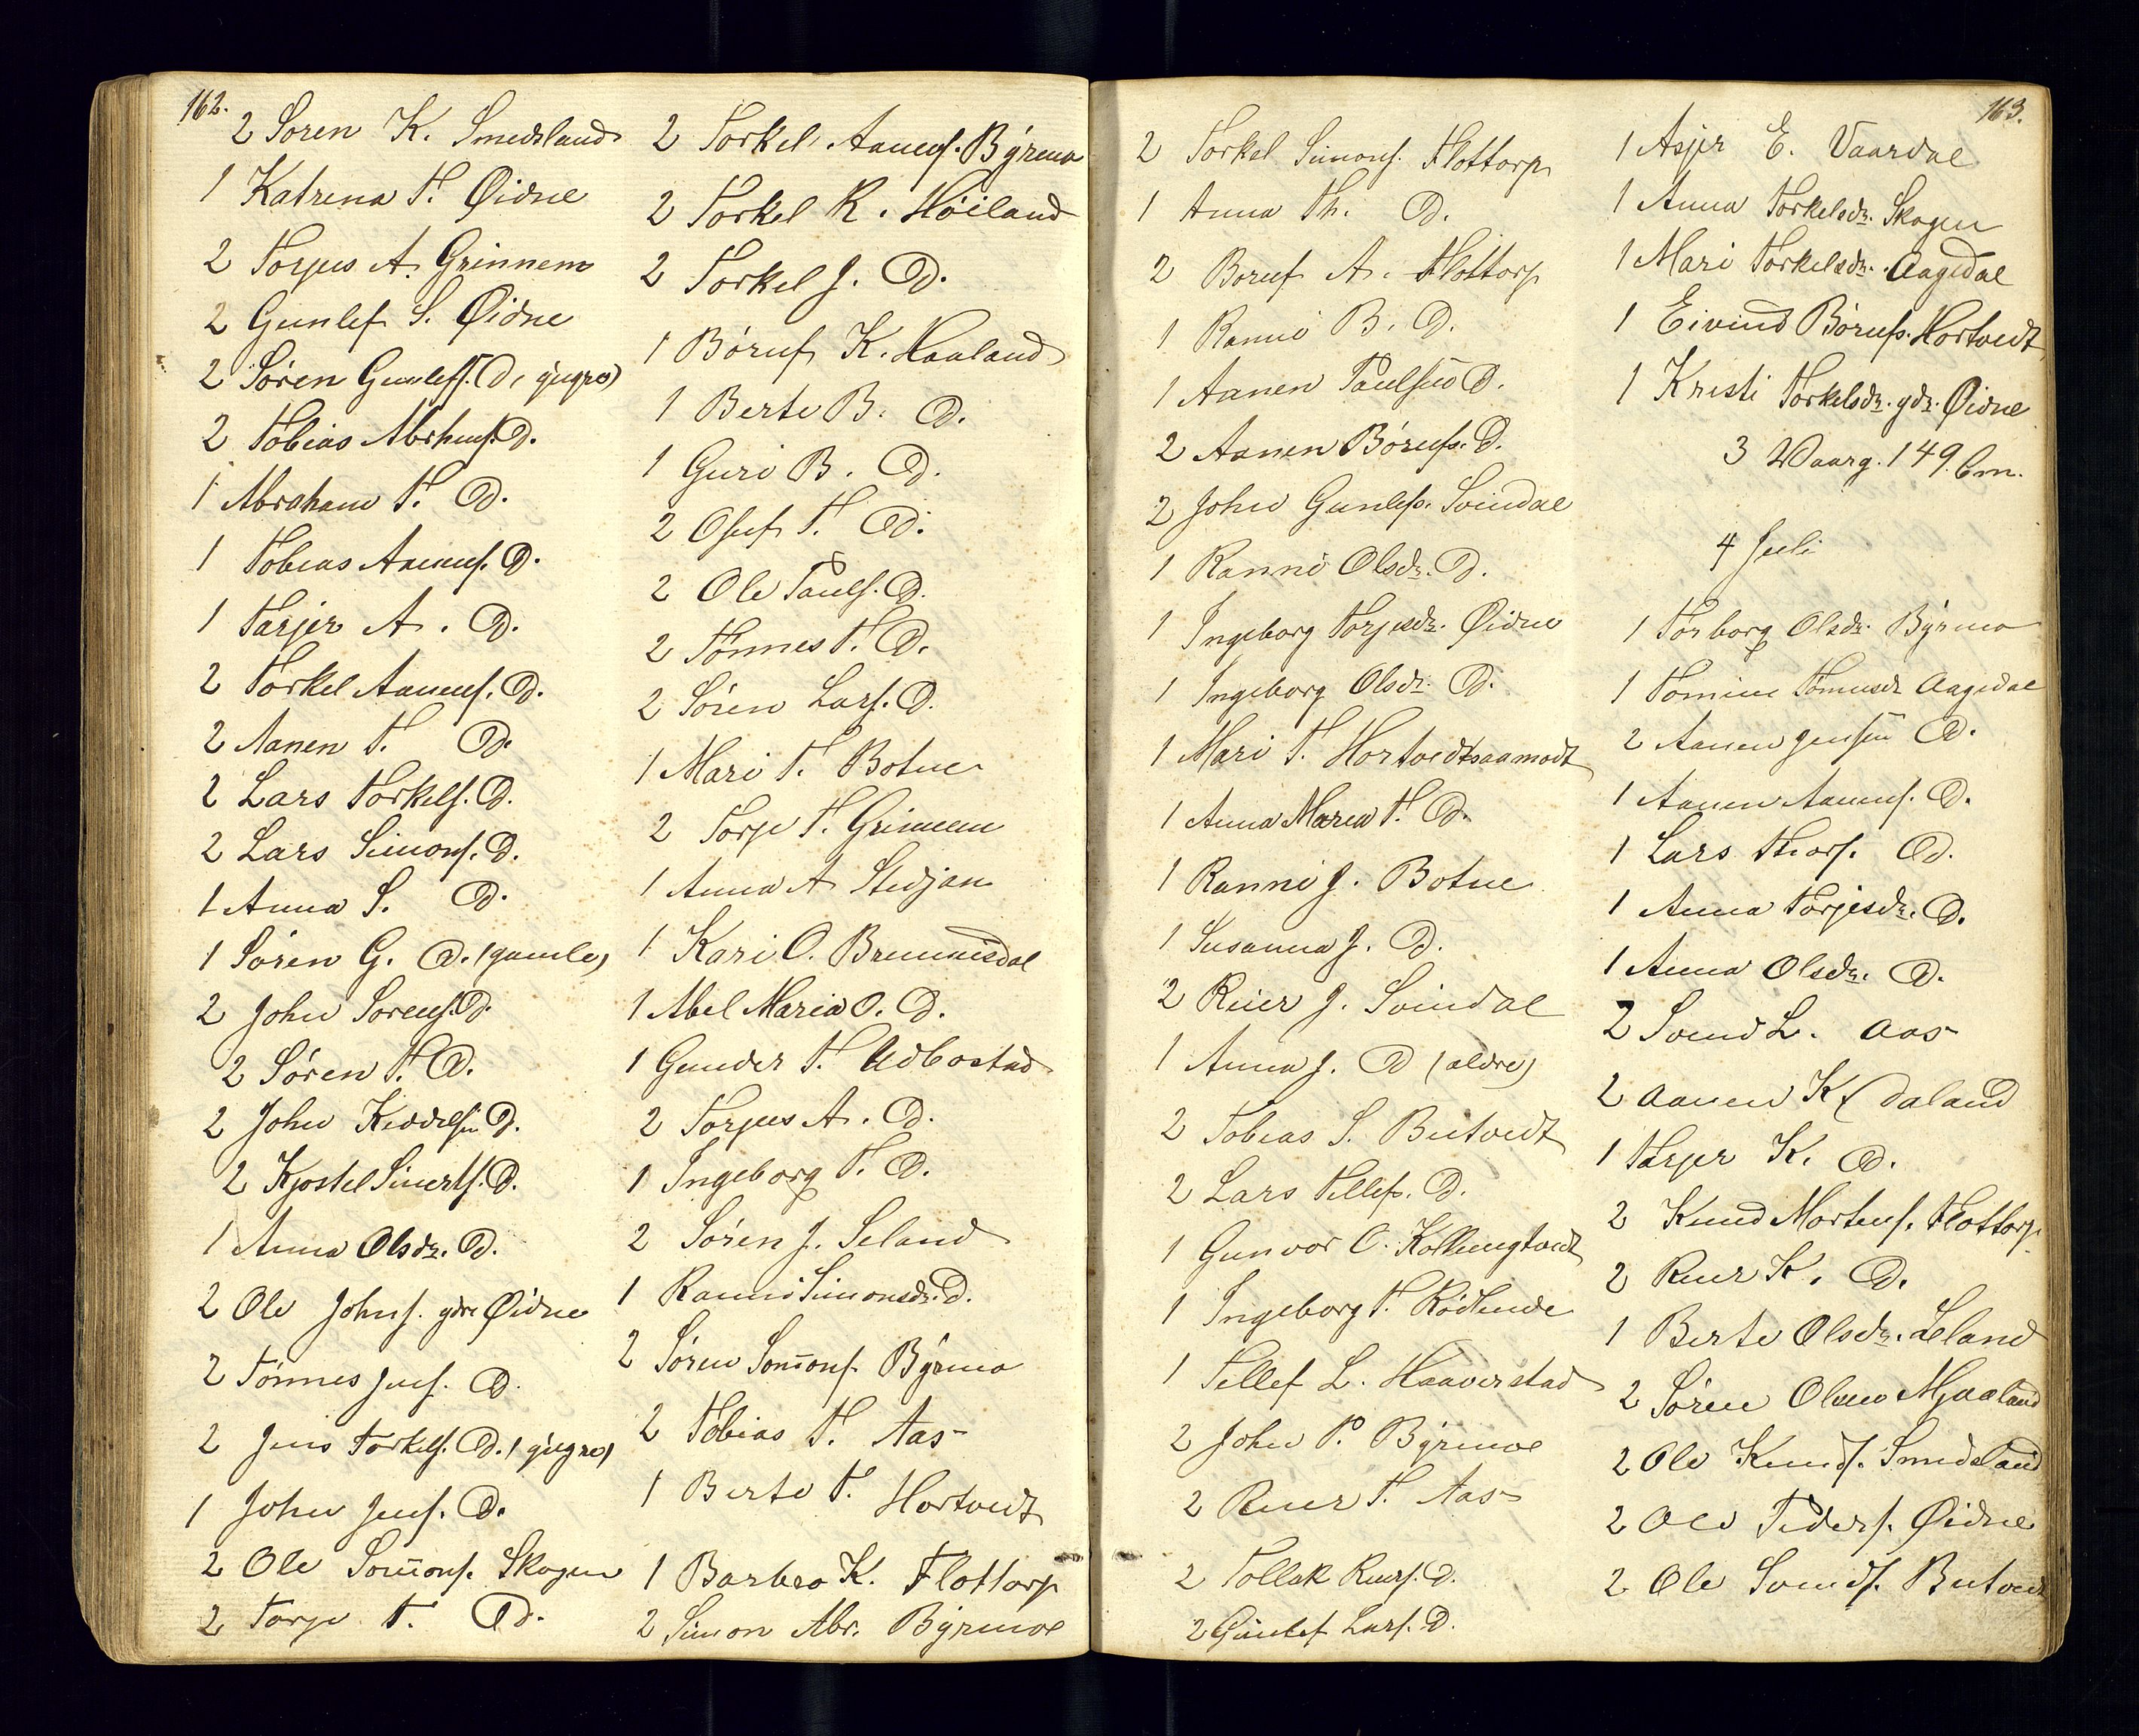 162.
2 Soren K. Smedsland
1 Katrina T. Øidne
2 Torjus A. Grinnem
2 Gunlef S. Øidne
2 Søren Gunlefs. D. (yngre)
2 Tobias Abrhms. D.
1 Abraham T. D.
1 Tobias Aanens. D.
1 Tarjer A. D.
2 Torkel Aanens. D.
2 Aanen T. D.
2 Lars Torkels. D.
2 Lars Simons. D.
1 Anna S. D.
1 Søren G. D. (gamle)
2 John Sorens. D.
2 Søren T. D.
2 John Kiddelsen D.
2 Kjostel Siverts. D.
1 Anna Olsdr. D.
2 Ole Johns. gdr. Øidne
2 Tönnes Jens. D.
2 Jens Torkels. D. (yngre)
1 John Jens. D.
2 Ole Som̅ons. Skogen
2 Torje T. D.
2 Torkel Aanens. Byrmo
2 Torkel R. Høiland
2 Torkel J. D.
1 Böruf K. Haaland
1 Berte B. D.
1 Guri B. D.
2 Osuf T. D.
2 Ole Pauls. D.
2 Tönnes T. D.
2 Søren Lars. D.
1 Mari T. Botne
2 Torje T. Grimeem
1 Anna A Stedjan
1 Kari O. Brunnisdal
1 Abel Maria O. D.
1 Gunder T. Udbostad
2 Torjus A. D.
1 Ingeborg T. D.
2 Søren J. Seland
1 Ranni Simonsdr. D.
2 Søren Som̅ons. Byrmo
2 Tobias T. Aas
1 Berte T. Hortvedt
1 Barbro K. Flottorp
2 Simon Abr. Byrmoe
163.
2 Torkel Simons. Flottorp
1 Anna Th. D.
2 Boruf A. Flottorp
1 Ranni B. D.
1 Aanen Paulsen D.
2 Aanen Börufs. D.
2 John Gunlefs. Svindal
1 Ranni Olsdr. D.
1 Ingeborg Torjesdr. Øidne
1 Ingeborg Olsdr. D.
1 Mari T. Hortvedtsaamodt
1 Anna Maria T. D.
1 Ranni J. Botne
1 Susanna J. D.
2 Reier J. Svindal
1 Anna J. D (aldre)
2 Tobias S. Butvedt
2 Lars Tellefs. D.
1 Gunvor O. Kollungtvedt
1 Ingeborg T. Rödlende
1 Tellef L. Haaverstad
2 John P. Byrmoe
2 Reier T. Aas
2 Tollak Reiers. D.
2 Gunlef Lars. D.
1 Asjer E. Vaardal
1 Anna Torkelsdr. Skogen
1 Mari Torkelsdr. Aagedal
1 Eivind Börufs. Hortvedt
1 Kristi Torkelsdr. gdr. Øidne
3 Vaarg. 149 Cm.
4 Juli
1 Torborg Olsdr. Byrmo
1 Tomine Tönnesdr Aagedal
2 Aanen Jensen D.
1 Aanen Aanens. D.
1 Lars Thors. D.
1 Anna Torjesdr. D.
1 Anna Olsdr. D.
2 Svend L. Aas
2 Aanen K. Daland
1 Tarjer K. D.
2 Knud Mortens. Flottorp
2 Reier K. D.
1 Berte Olsdr. Leland
2 Søren Olsen Mjaaland
2 Ole Knuds. Smedsland
2 Ole Peders. Øidne
2 Ole Svends. Butvedt